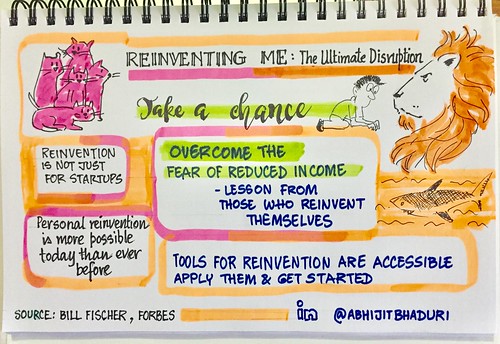 REINVENTING ME: The Ultimate Disruption
Take a chance
REINVENTION
IS NOT JUST
FOR STARTUPS
OVERCOME THE
FEAR OF REDUCED INCOME
- LESSON FROM
THOSE WHO REINVENT
THEMSELVES
Personal reinvention
is more possible
today than ever
before
TOOLS FOR REINVENTION ARE ACCESSIBLE
APPLY THEM & GET STARTED
SOURCE: BILL FISCHER, FORBES
in @ABHIJITBHADURI